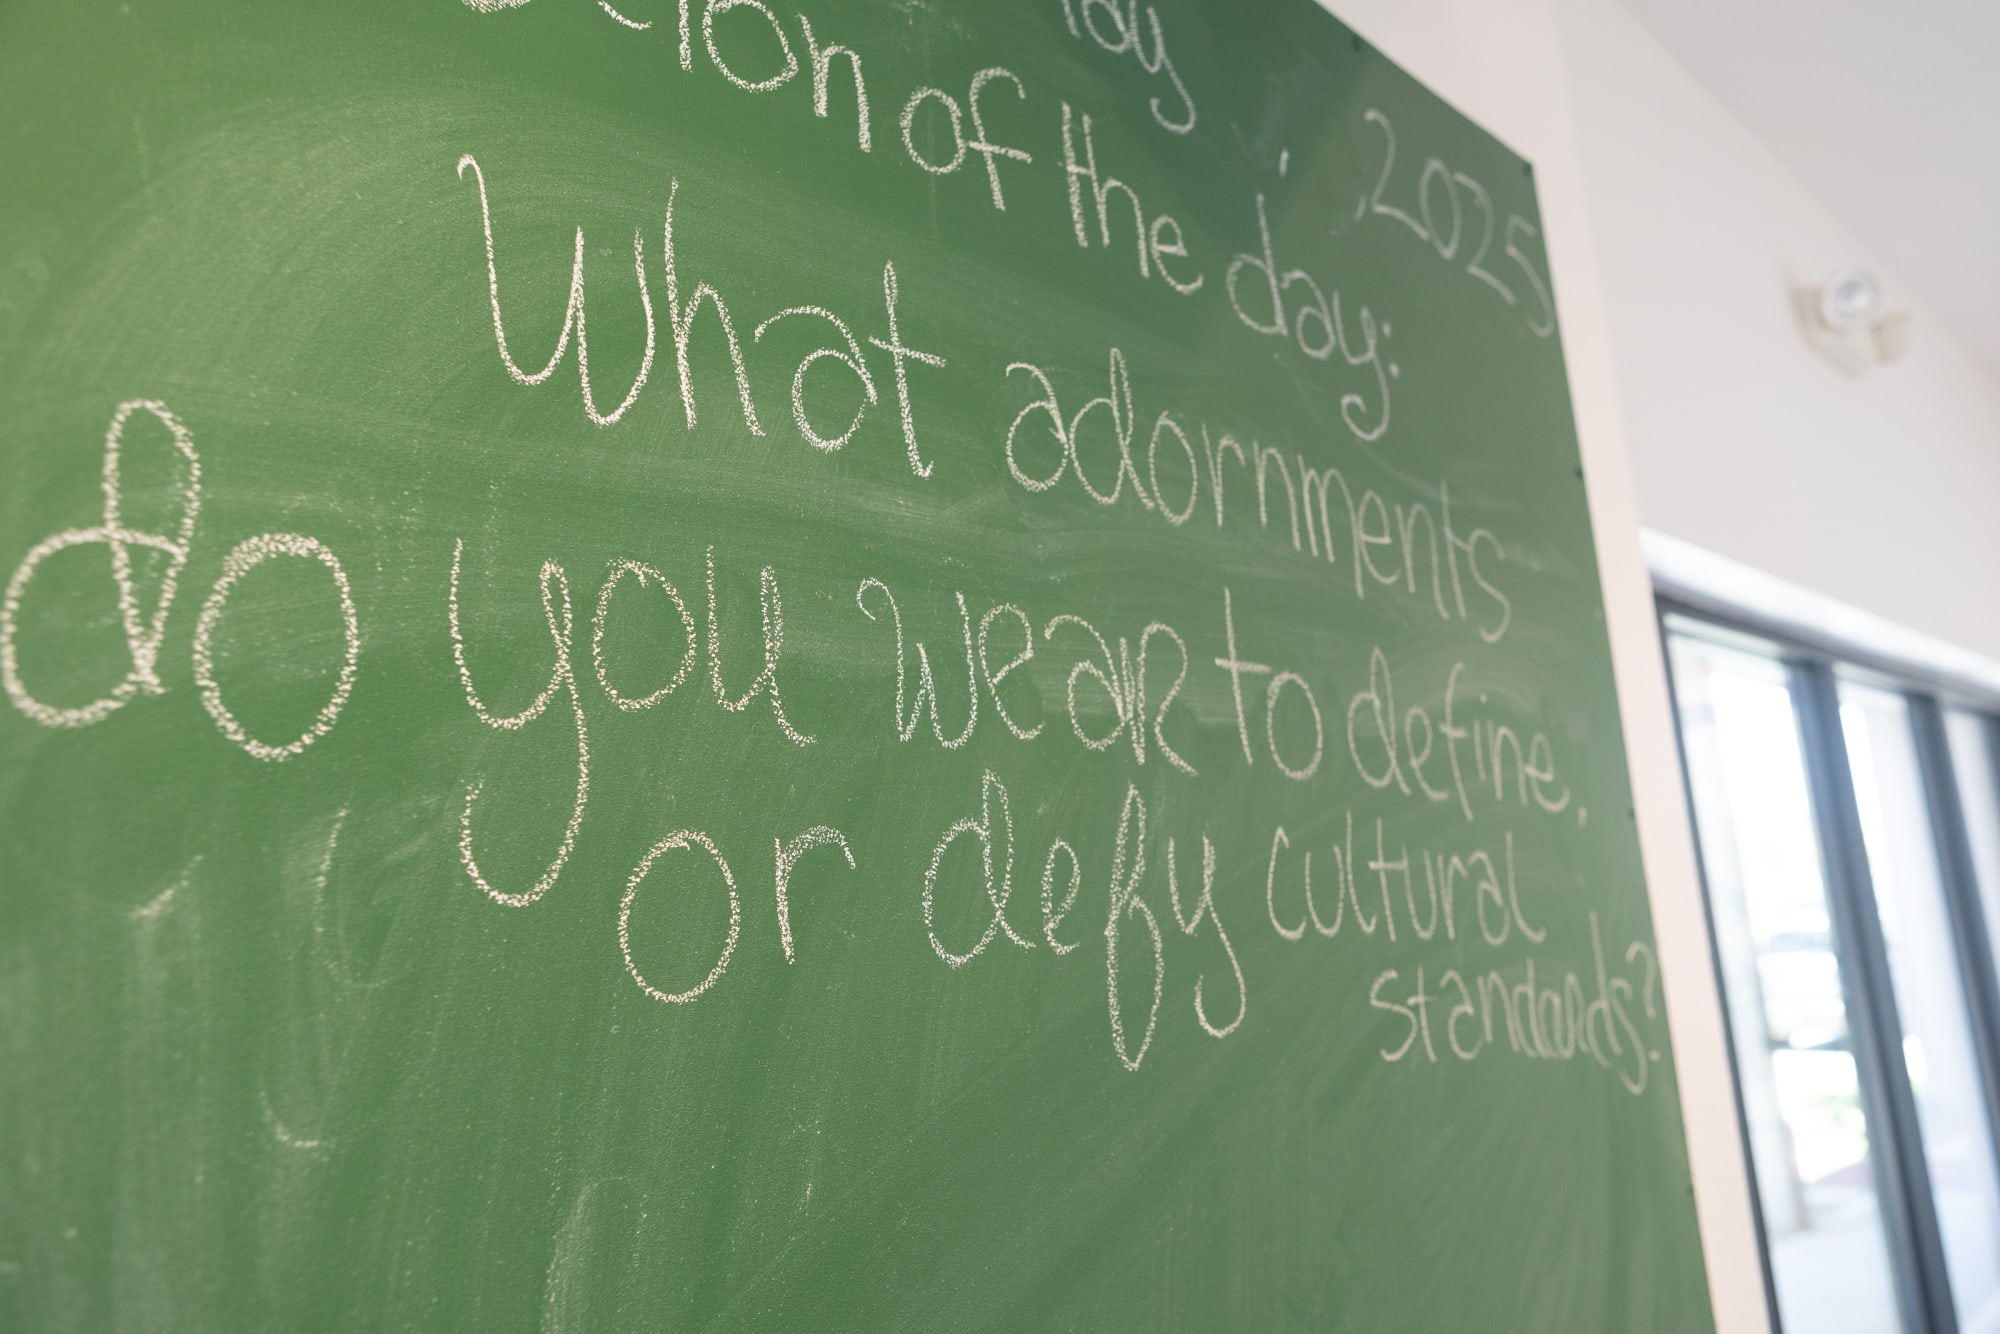 , 2025
of the day:
What adornments
do you wear to define,
or defy cultural
standards?